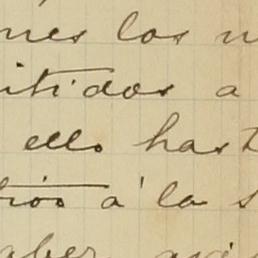 nes los n
itidos a
ello hast
tios á la s
aber